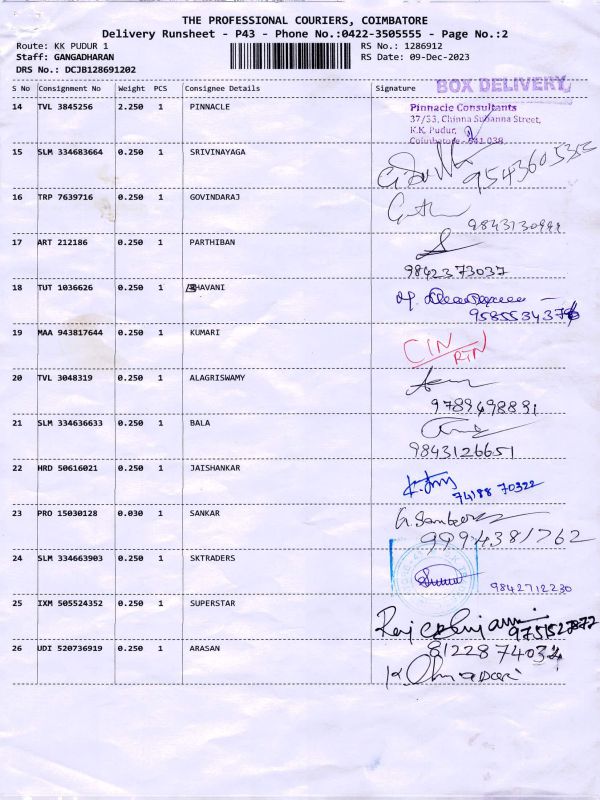 THE PROFESSIONAL COURIERS, COIMBATORE
Delivery Runsheet - P43 - Phone No.:0422-3505555 - Page No.:2
Route: KK PUDUR 1 RS No.: 1286912
Staff: GANGADHARAN RS Date: 09-Dec-2023
DRS No.: DCJB128691202
BOX DELIVERY
S No Consignment No Weight PCS Consignee Details Signature
14 TVL 3845256 2.250 1 PINNACLE
Pinnacle Consultants
37/53, Chinna Subanna Street,
K.K. Pudur,
Coimbatore - 641 038
15 SLM 334683664 0.250 1 SRIVINAYAGA
16 TRP 7639716 0.250 1 GOVINDARAJ
17 ART 212186 0.250 1 PARTHIBAN
9842373037
18 TUT 1036626 0.250 1 BHAVANI
19 MAA 943817644 0.250 1 KUMARI CIN
RTN
20 TVL 3048319 0.250 1 ALAGRISWAMY
9789498891
21 SLM 334636633 0.250 1 BALA
9843126651
22 HRD 50616021 0.250 1 JAISHANKAR
74188 70322
23 PRO 15030128 0.030 1 SANKAR
9994381762
24 SLM 334663903 0.250 1 SKTRADERS
9842712230
25 IXM 505524352 0.250 1 SUPERSTAR
26 UDI 520736919 0.250 1 ARASAN 8122874032